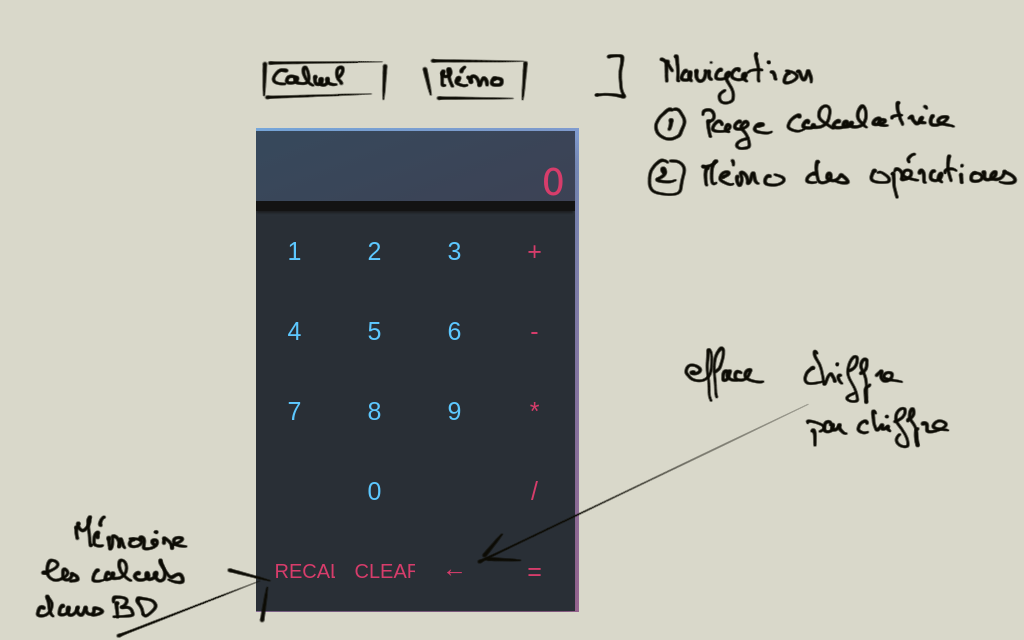 Calcul Mémo
Navigation
① Page calculatrice
② Mémo des opérations
0
1 2 3 +
4 5 6 -
7 8 9 *
0 /
RECAL CLEAR ← =
efface chiffre
par chiffre
Mémoire
les calculs
dans BD